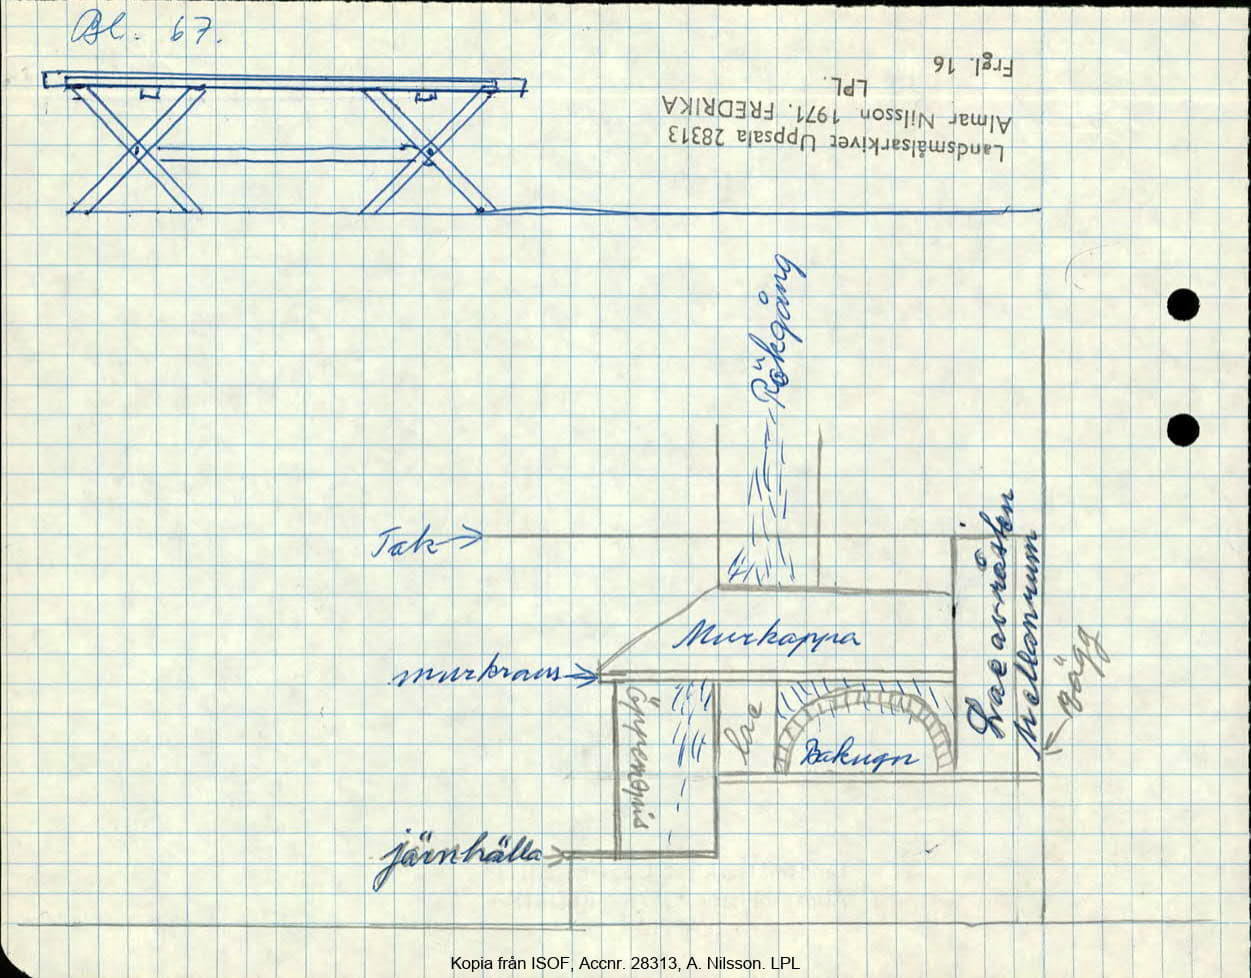 Bl. 67.
Landsmålsarkivet Uppsala 28313
Almar Nilsson 1971. FREDRIKA
LPL.
Frgl. 16
Rökgång
Tak
Murkappa
murkrans
Öppenspis
Bakugn
mellanrum
vägg
järnhälla
Kopia från ISOF, Accnr. 28313, A. Nilsson. LPL